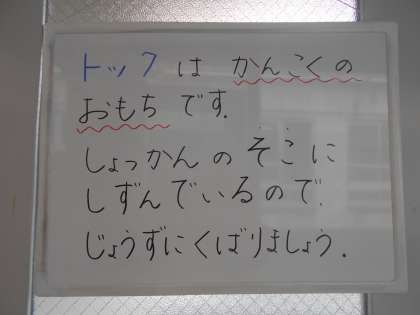 トックは かんこくの
おもちです.
しょっかんのそこに
しずんでいるので.
じょうずにくばりましょう.